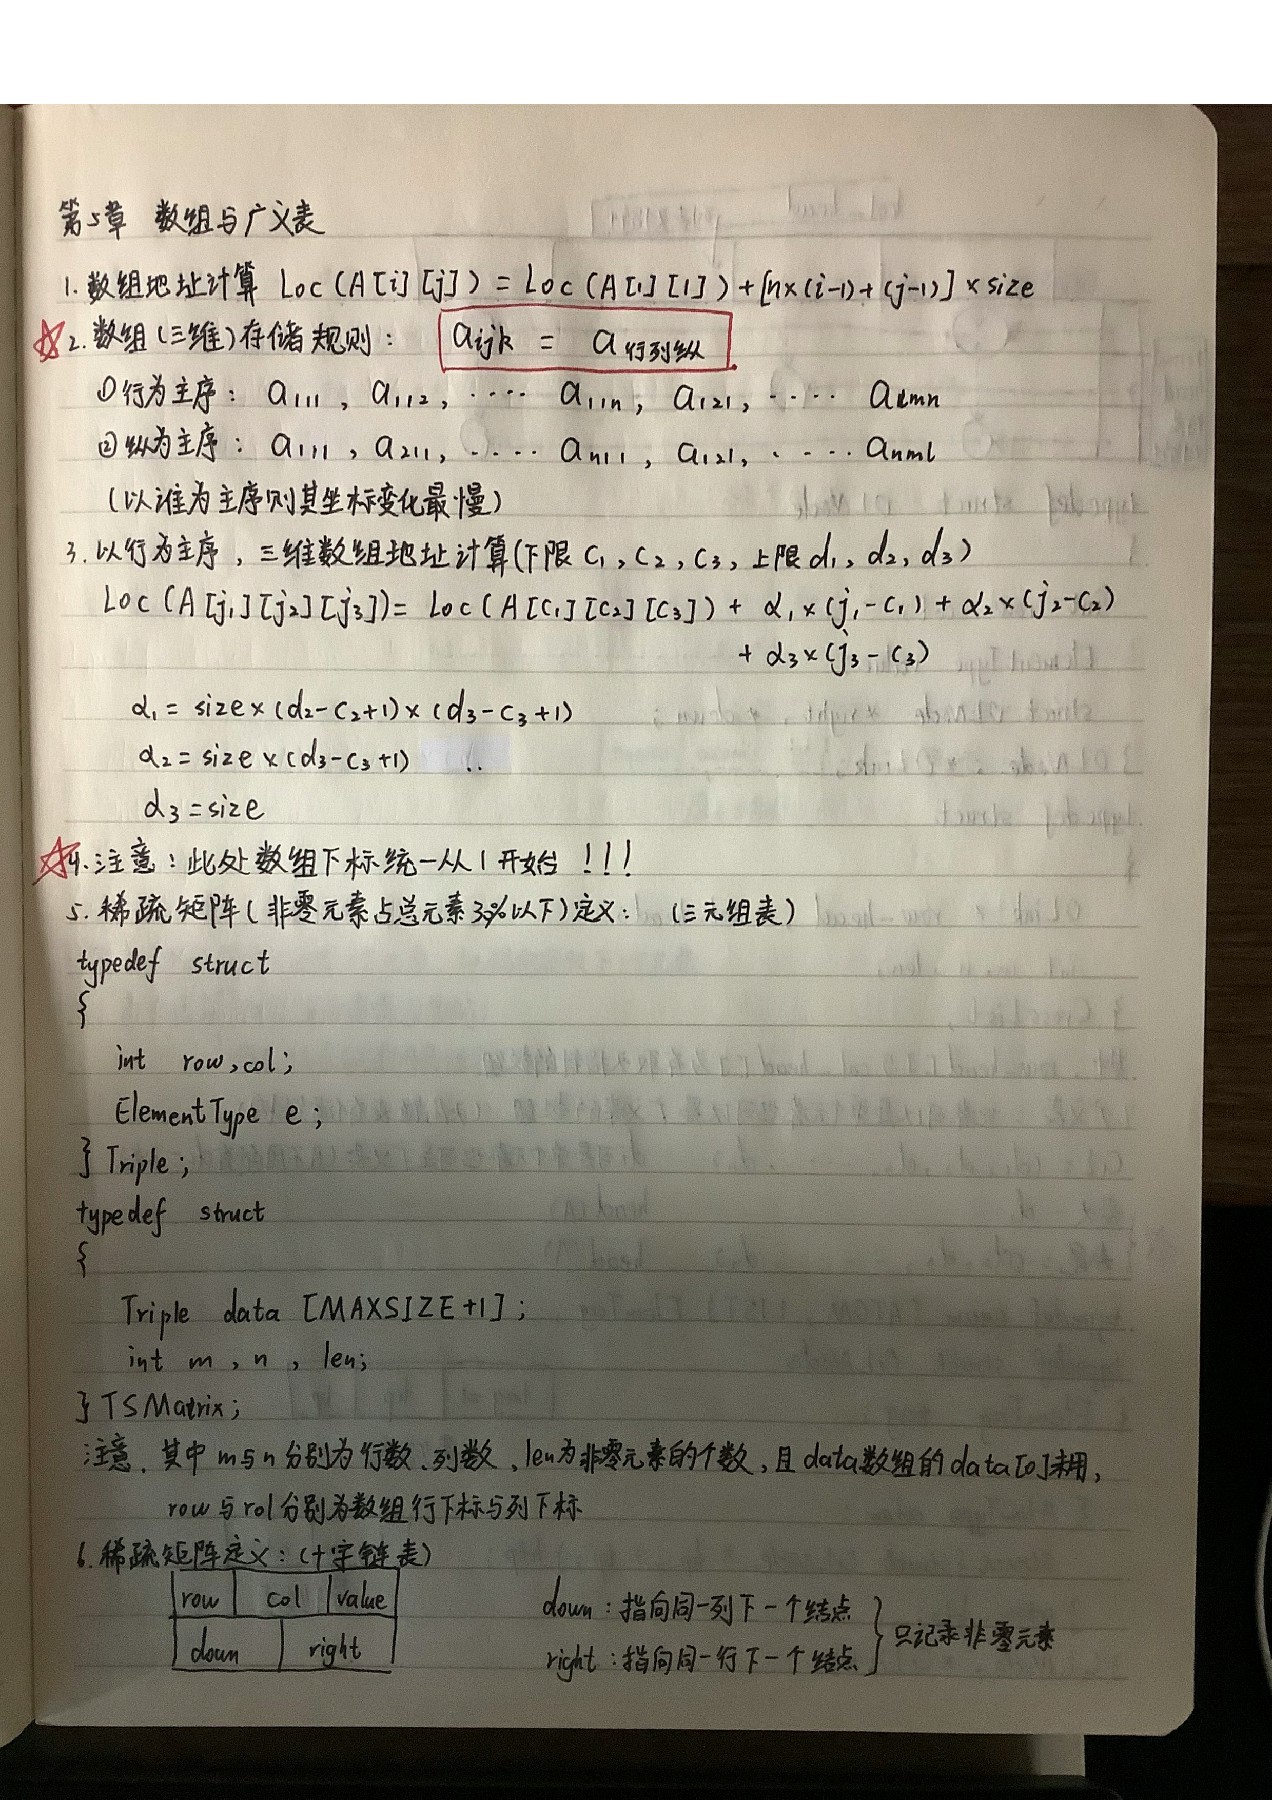 第5章 数组与广义表
1. 数组地址计算 Loc(A[i][j]) = Loc(A[1][1]) + [n×(i-1)+(j-1)]×size
☆2. 数组(三维)存储规则: aijk = a行列纵.
①行为主序: a111, a112, ···· a11n, a121, ···· almn
②纵为主序: a111, a211, ····· an11, a121, ····· anml
(以谁为主序则其坐标变化最慢)
3. 以行为主序, 三维数组地址计算(下限 c1, c2, c3, 上限 d1, d2, d3)
Loc(A[j1][j2][j3]) = Loc(A[c1][c2][c3]) + α1×(j1-c1) + α2×(j2-c2)
+ α3×(j3-c3)
α1 = size×(d2-c2+1)×(d3-c3+1)
α2 = size×(d3-c3+1)
α3 = size
☆4. 注意: 此处数组下标统一从1开始!!!
5. 稀疏矩阵(非零元素占总元素30%以下)定义: (三元组表)
typedef struct
{
int row,col;
ElementType e;
} Triple;
typedef struct
{
Triple data [MAXSIZE+1];
int m, n, len;
} TSMatrix;
注意. 其中m与n分别为行数、列数, len为非零元素的个数, 且data数组的data[0]未用,
row与rol分别为数组行下标与列下标
6. 稀疏矩阵定义: (十字链表)
row col value down: 指向同一列下一个结点
down right right: 指向同一行下一个结点 } 只记录非零元素